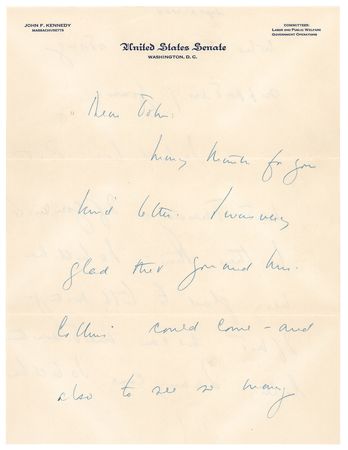 JOHN F. KENNEDY
MASSACHUSETTS
COMMITTEES:
LABOR AND PUBLIC WELFARE
GOVERNMENT OPERATIONS
United States Senate
WASHINGTON, D. C.
Dear John:
Many thanks for your
kind letter. I was very
glad that you and Mrs.
Collins could come – and
also to see so many